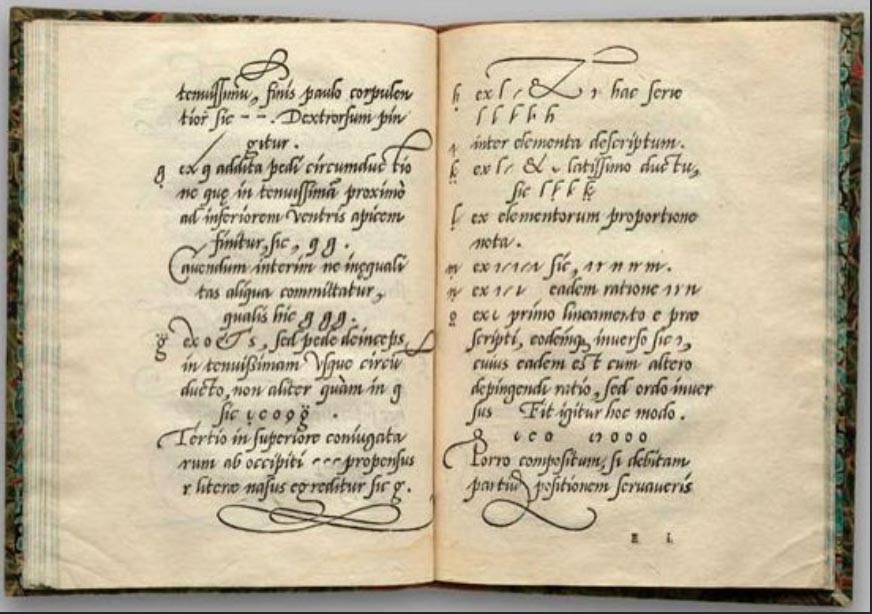 tenuissimu, finis paulo corpulen
tior sic - - . Dextrorsum pin
gitur.
g ex q addita pedi circumductio
ne quę in tenuissima proximò
ad inferiorem ventris apicem
finitur, sic, g g.
Cauendum interim ne inęquali
tas aliqua committatur,
qualis hic g g g.
g ex o & s, sed pede deinceps
in tenuißimam Vsque circũ
ducto, non aliter quàm in g
sic c o g g.
Tertio in superiore coniugata
rum ab occipiti propensus
r literæ nasus egreditur sic g.
h ex l & 1 hac serie
l l h h h
inter elementa descriptum.
k ex l & latissimo ductu,
sic l k k k
l ex elementorum proportione
nota.
m ex ı ı sic, ı r n n m.
n ex ı eadem ratione ı r n
o ex c primo lineamento e præ
scripti, eodemq, inuerso sic ı,
cuius eadem est cum altero
depingendi ratio, sed ordo inuer
sus Fit igitur hoc modo.
c c o o o o
Porro compositum, si debitam
partiũ positionem seruaueris
E i.